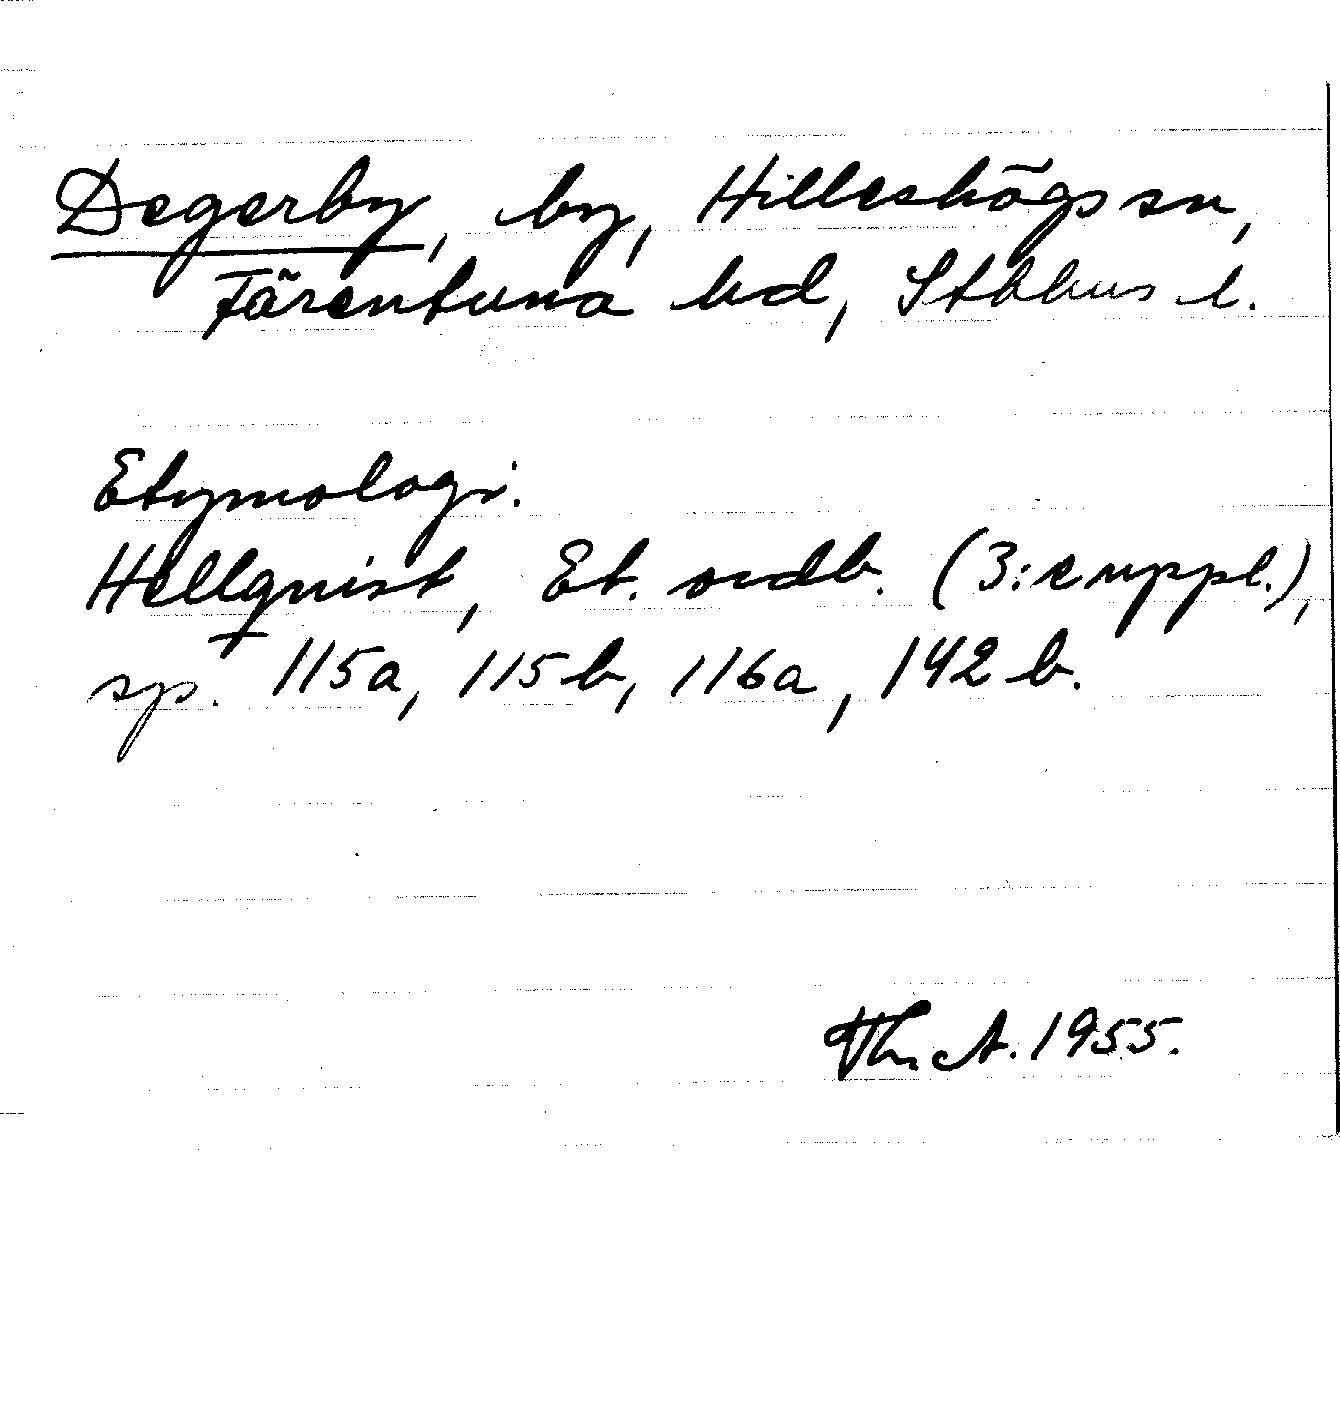 Degerby, by, Hilleshögs sn,
Färentuna hd, Sthlms l.
Etymologi.
Hellquist, Et. ordb. (3:e uppl.),
sp. 115a, 115b, 116a, 142 b.
Th. A. 1955.